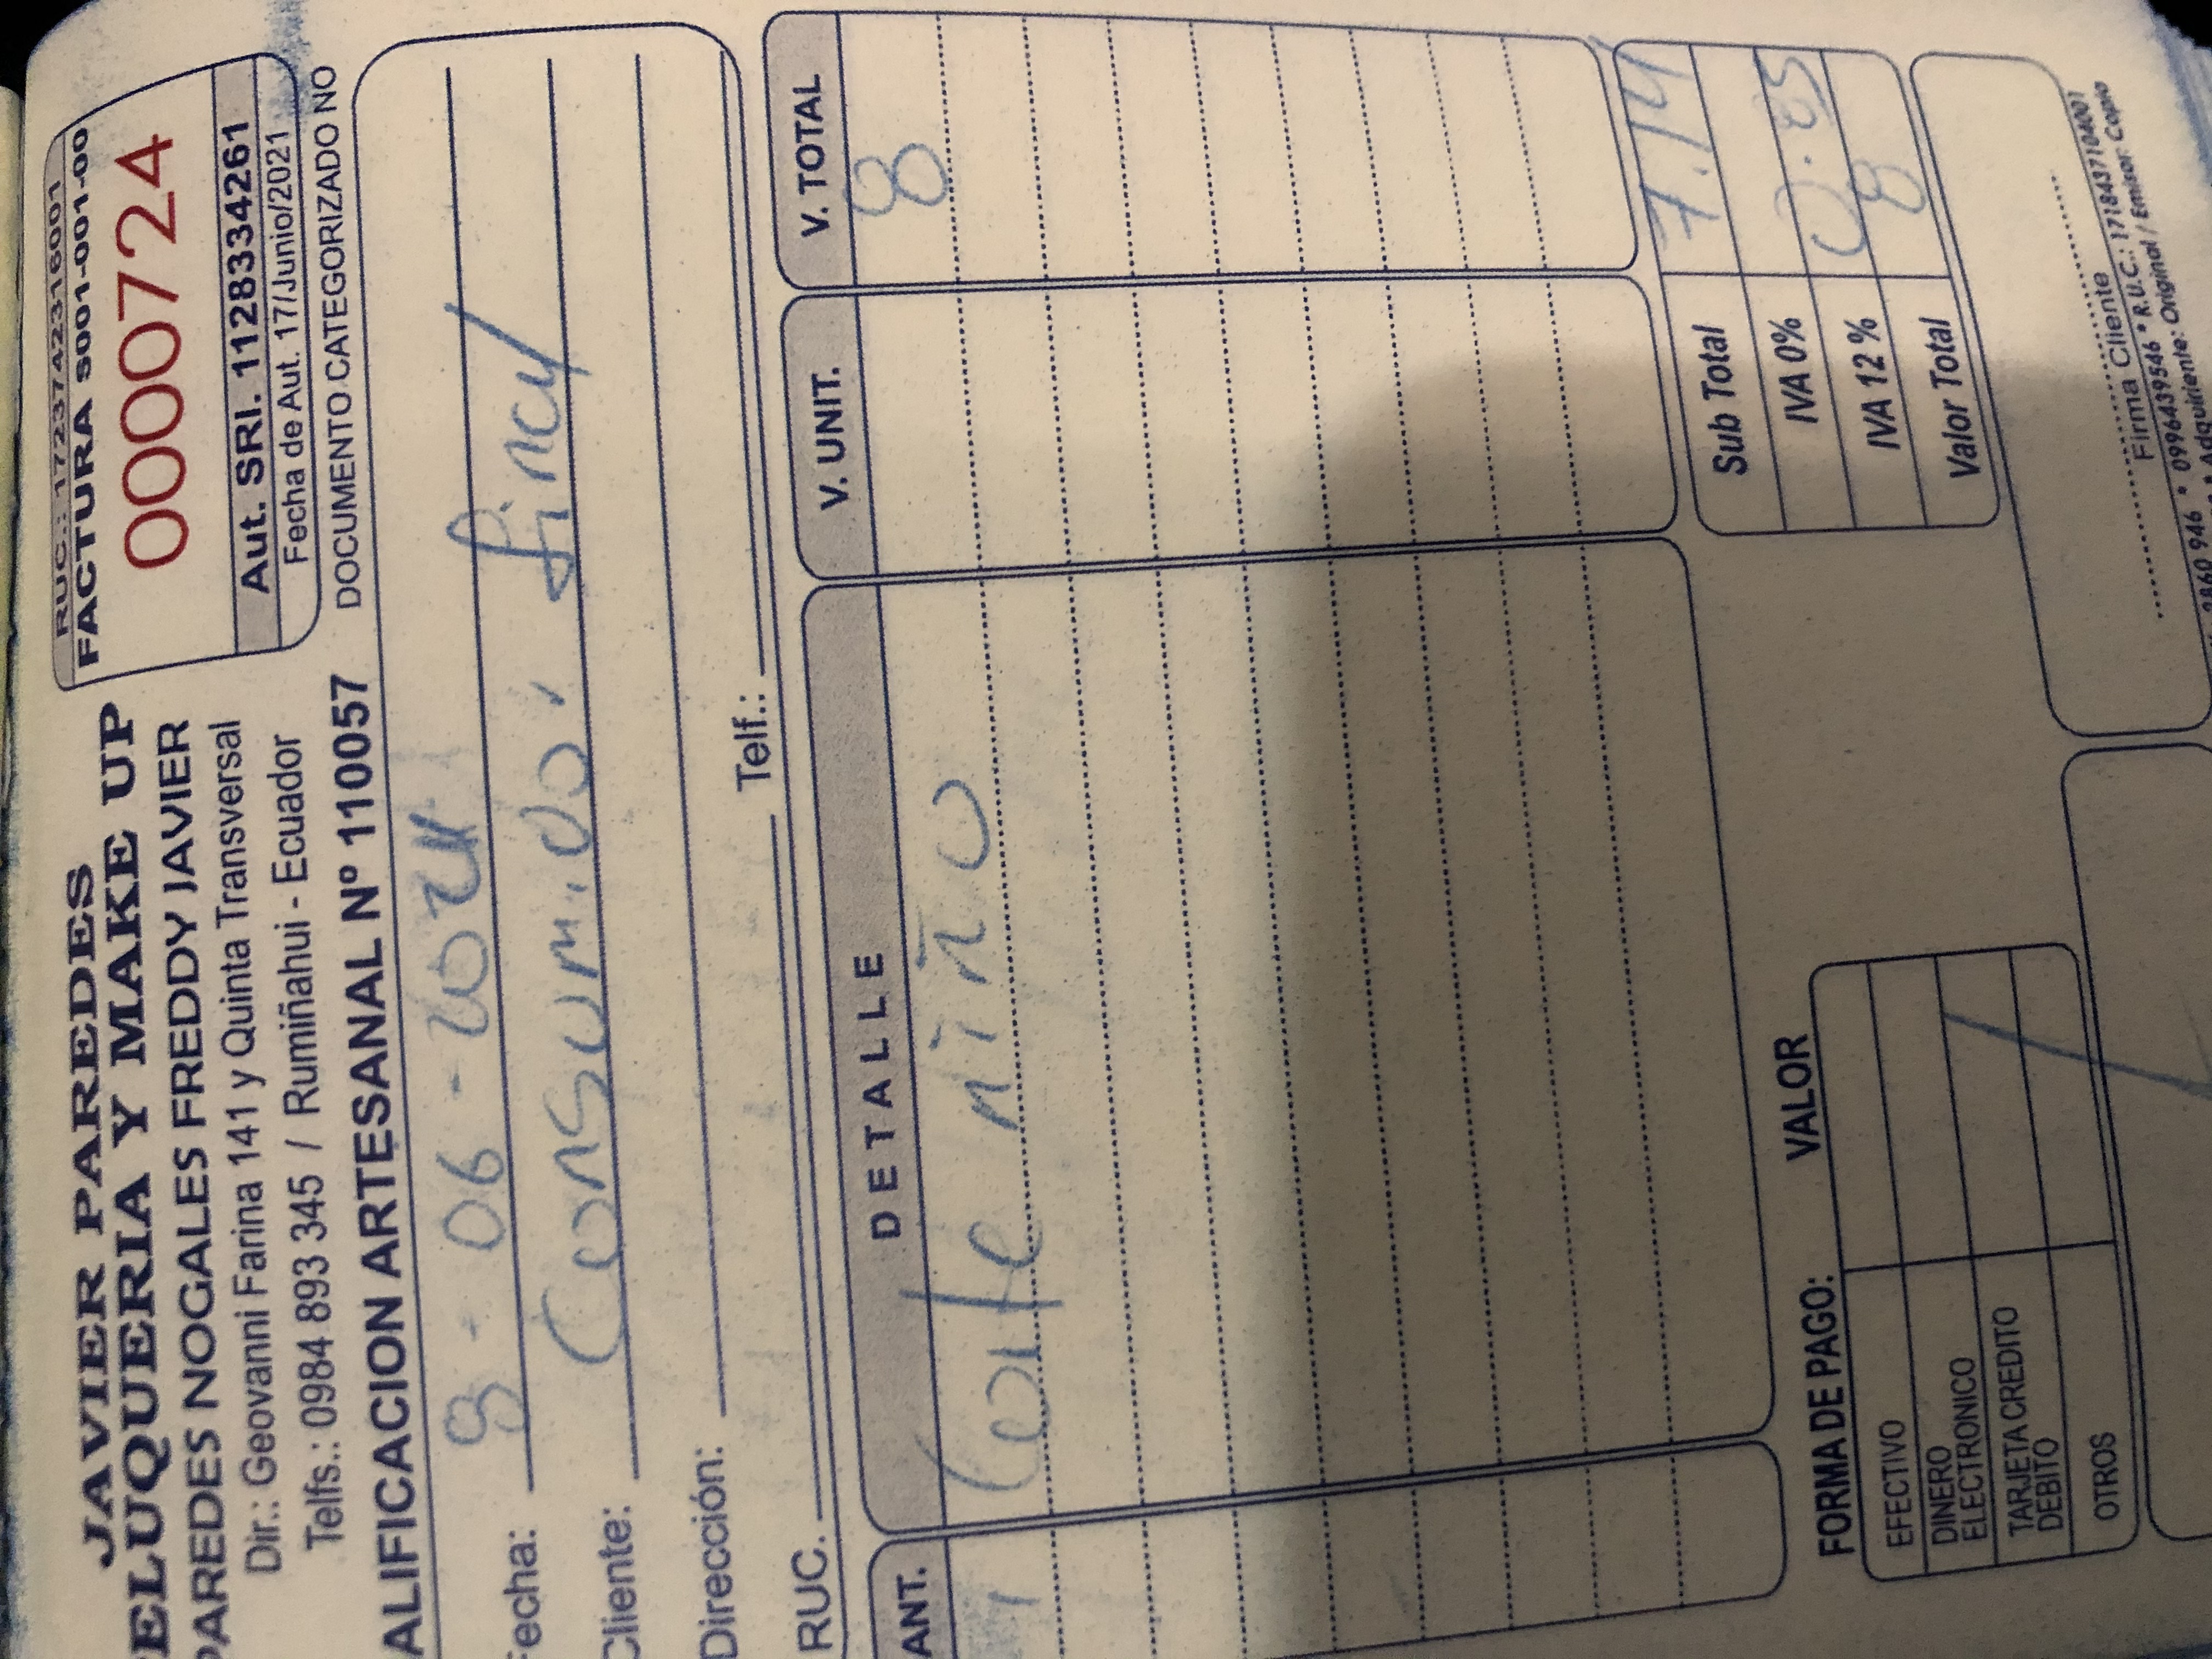 JAVIER PAREDES
ELUQUERIA Y MAKE UP
PAREDES NOGALES FREDDY JAVIER
Dir.: Geovanni Farina 141 y Quinta Transversal
Telfs.: 0984 893 345 / Rumiñahui - Ecuador
ALIFICACION ARTESANAL Nº 110057
RUC.: 1723742316001
FACTURA S001-001-00
0000724
Aut. SRI. 1128334261
Fecha de Aut. 17/Junio/2021
DOCUMENTO CATEGORIZADO NO
Fecha: 06 - 2021
Cliente: Consumidor final
Dirección:
RUC. Telf.:
ANT. DETALLE V. UNIT. V. TOTAL
1 Corte niño 8
Sub Total 7.14
IVA 0%
IVA 12 % 0.85
Valor Total 8
FORMA DE PAGO: VALOR
EFECTIVO
DINERO ELECTRONICO
TARJETA CREDITO DEBITO
OTROS
Firma Cliente
2860 946 * 0996439546 * R.U.C.: 1718437104001
* Adquiriente: Original / Emisor: Copia